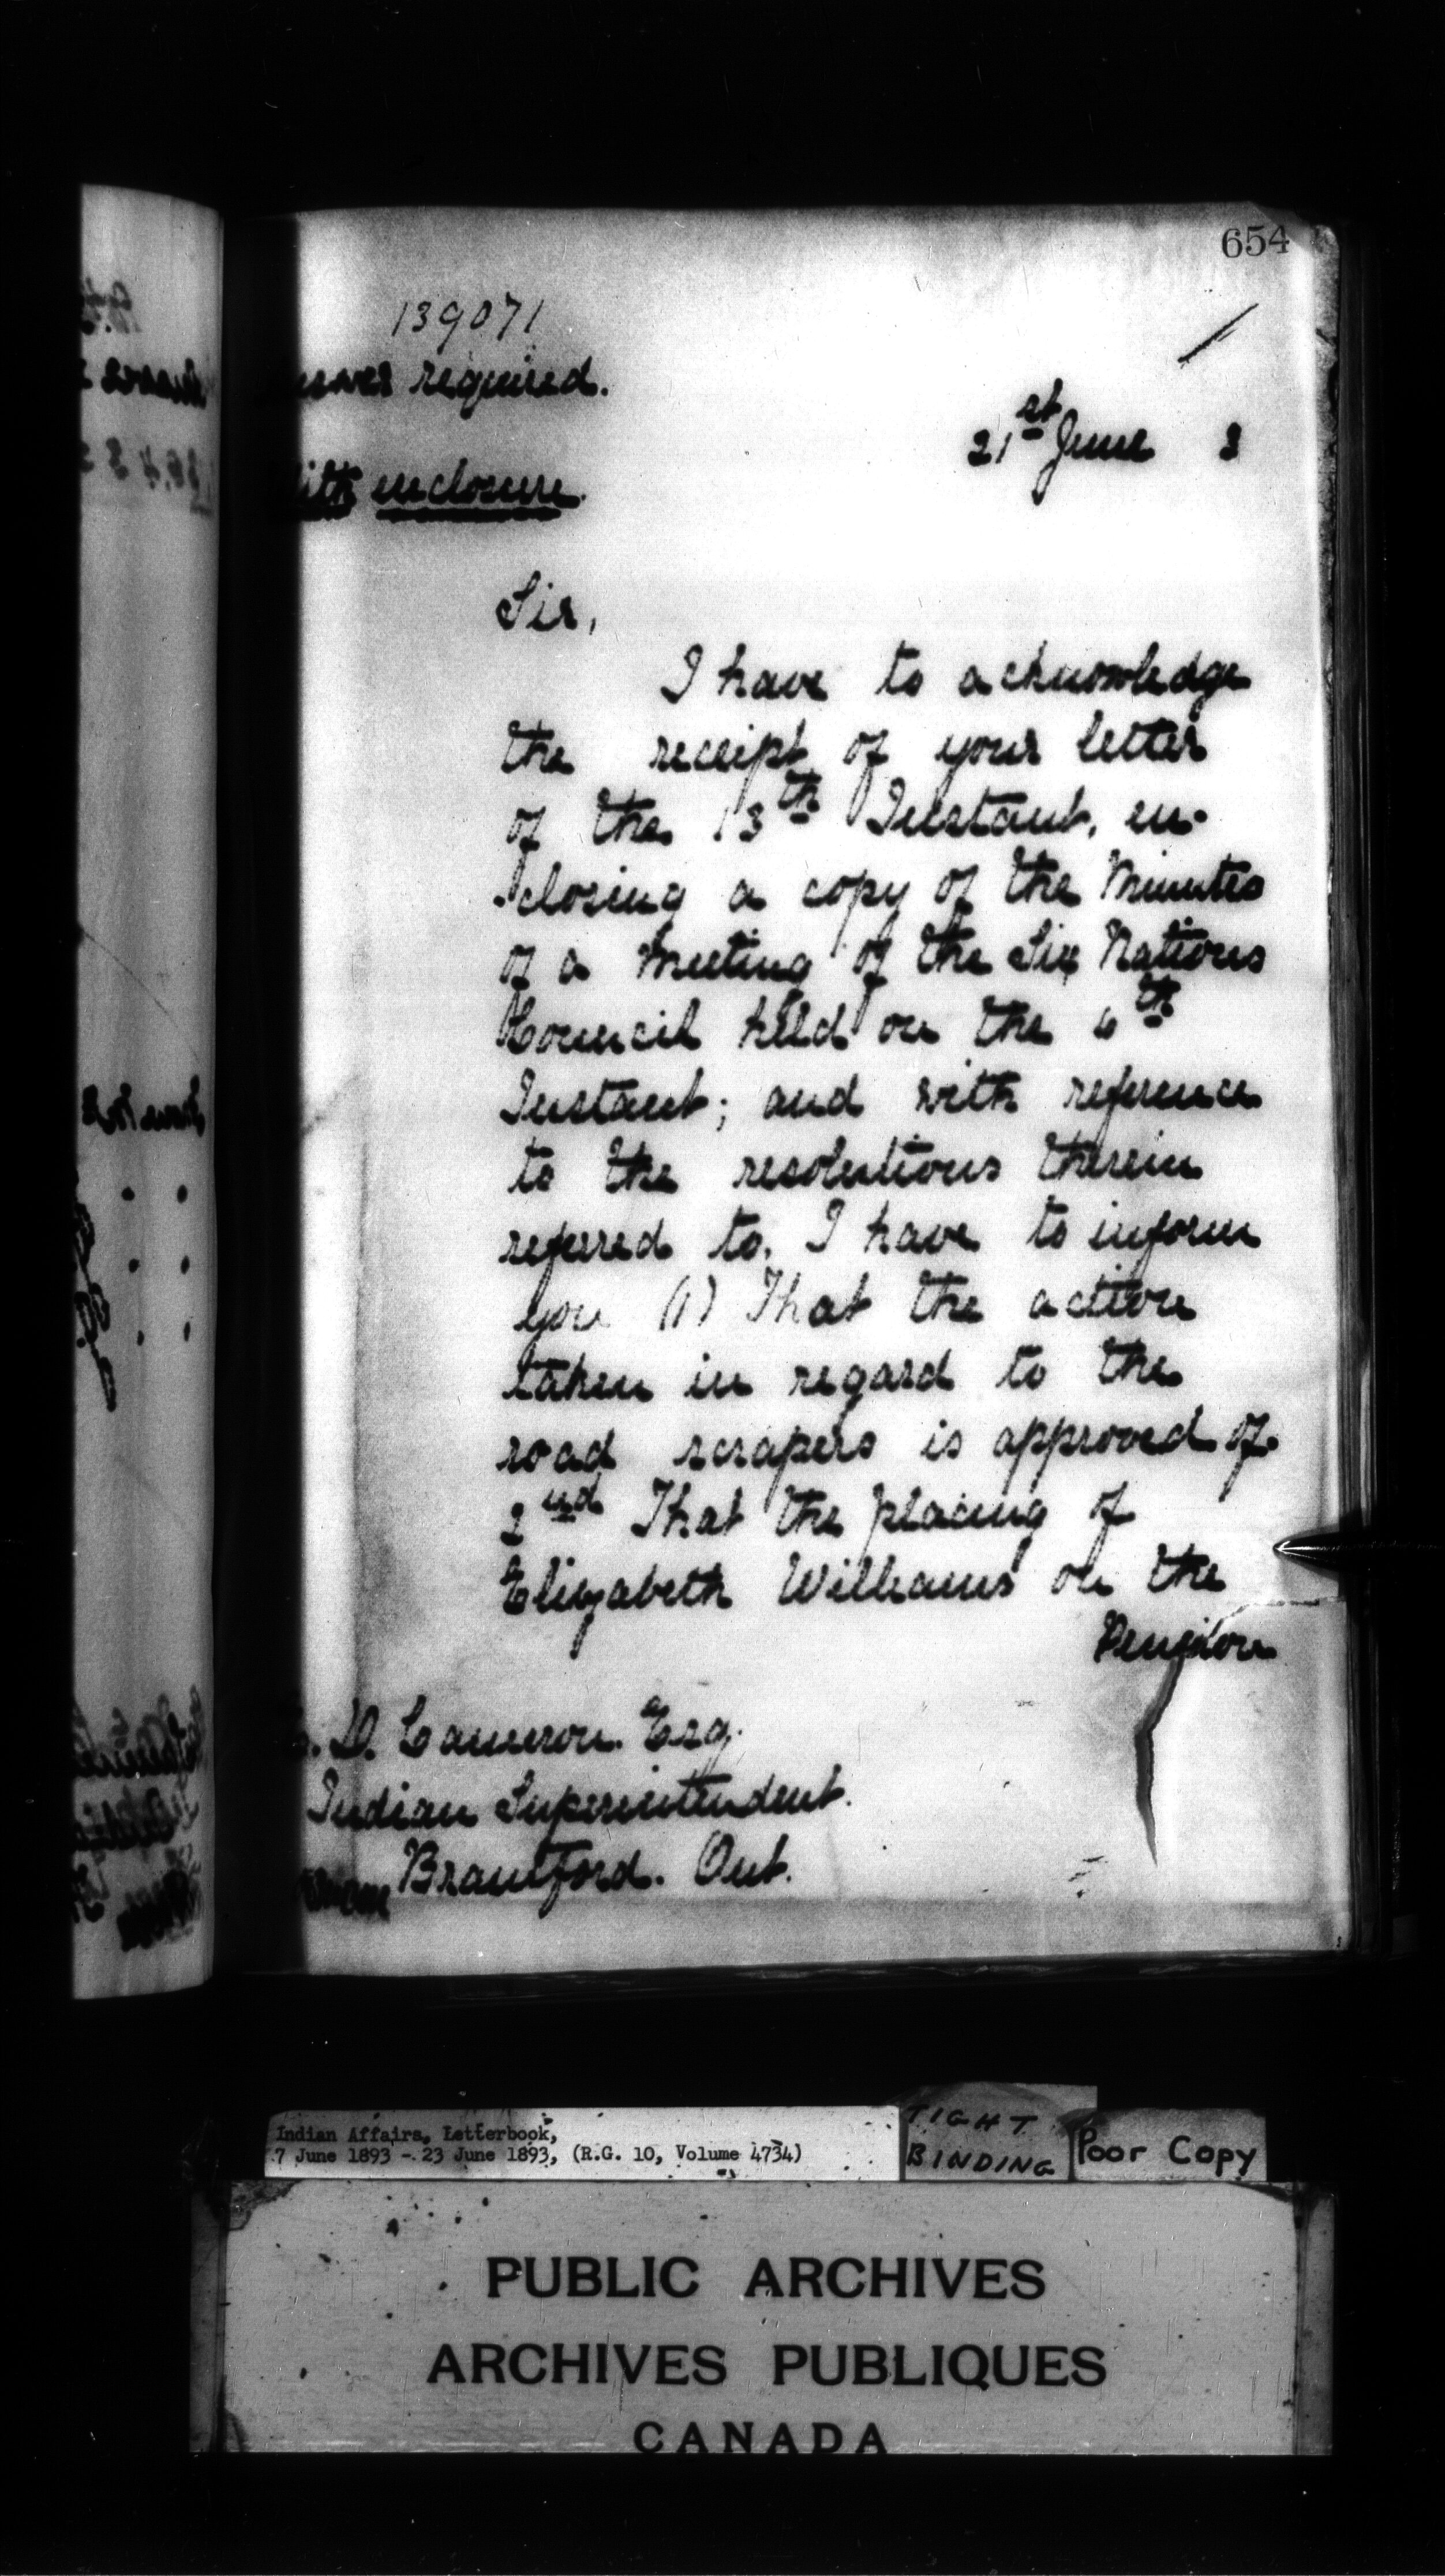 654
139071
required.
enclosure.
21st June 3
Sir,
I have to acknowledge
the receipt of your letter
of the 13th Instant, en-
-closing a copy of the Minutes
of a Meeting of the Six Nations
Council held on the 6th
Instant; and with reference
to the resolutions therein
referred to, I have to inform
you (1) That the action
taken in regard to the
road scrapers is approved of.
2nd That the placing of
Elizabeth Williams on the
Pension
D. Cameron Esq.
Indian Superintendent.
Brantford. Ont.
Indian Affairs, Letterbook,
7 June 1893 - 23 June 1893, (R.G. 10, Volume 4734)
TIGHT
BINDING
Poor Copy
PUBLIC ARCHIVES
ARCHIVES PUBLIQUES
CANADA